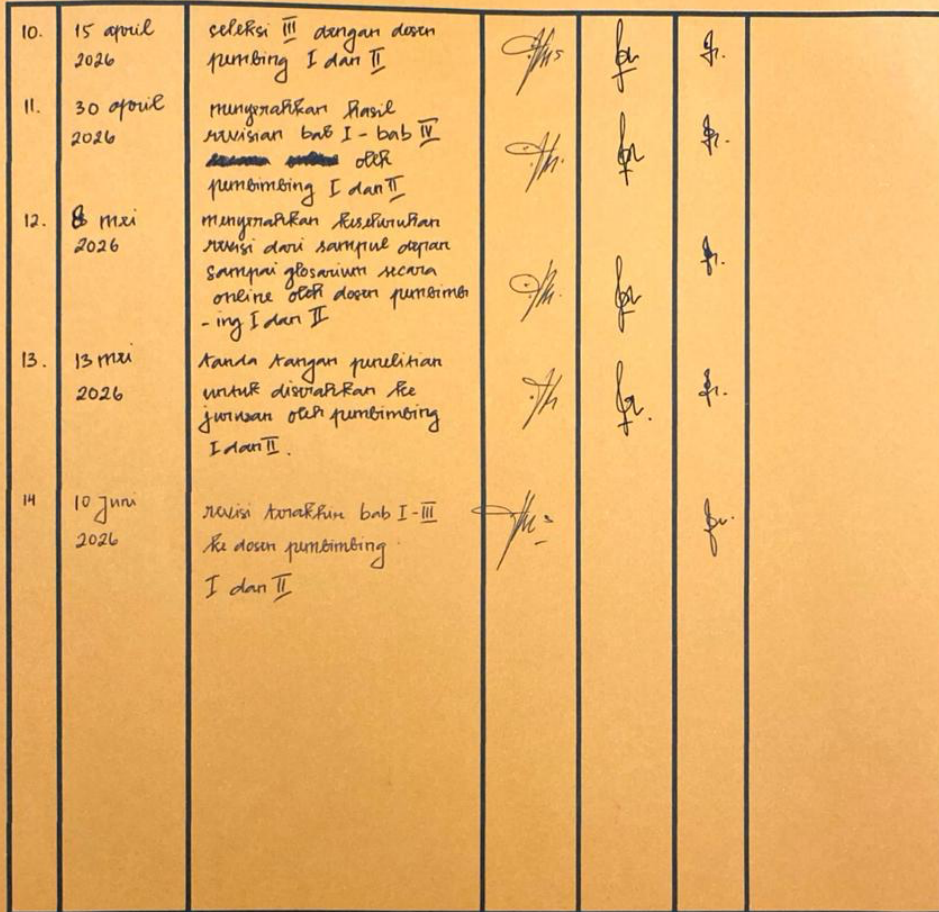 10. 15 april 2026 seleksi III dengan dosen
pembing I dan II
11. 30 april 2026 menyerahkan hasil
revisian bab I - bab IV
oleh
pembimbing I dan II
12. 8 mei 2026 menyerahkan keseluruhan
revisi dari sampul depan
sampai glosarium secara
online oleh dosen pembimb
- ing I dan II
13. 13 mei 2026 tanda tangan penelitian
untuk diserahkan ke
jurusan oleh pembimbing
I dan II.
14 10 Juni 2026 revisi terakhir bab I - III
ke dosen pembimbing
I dan II